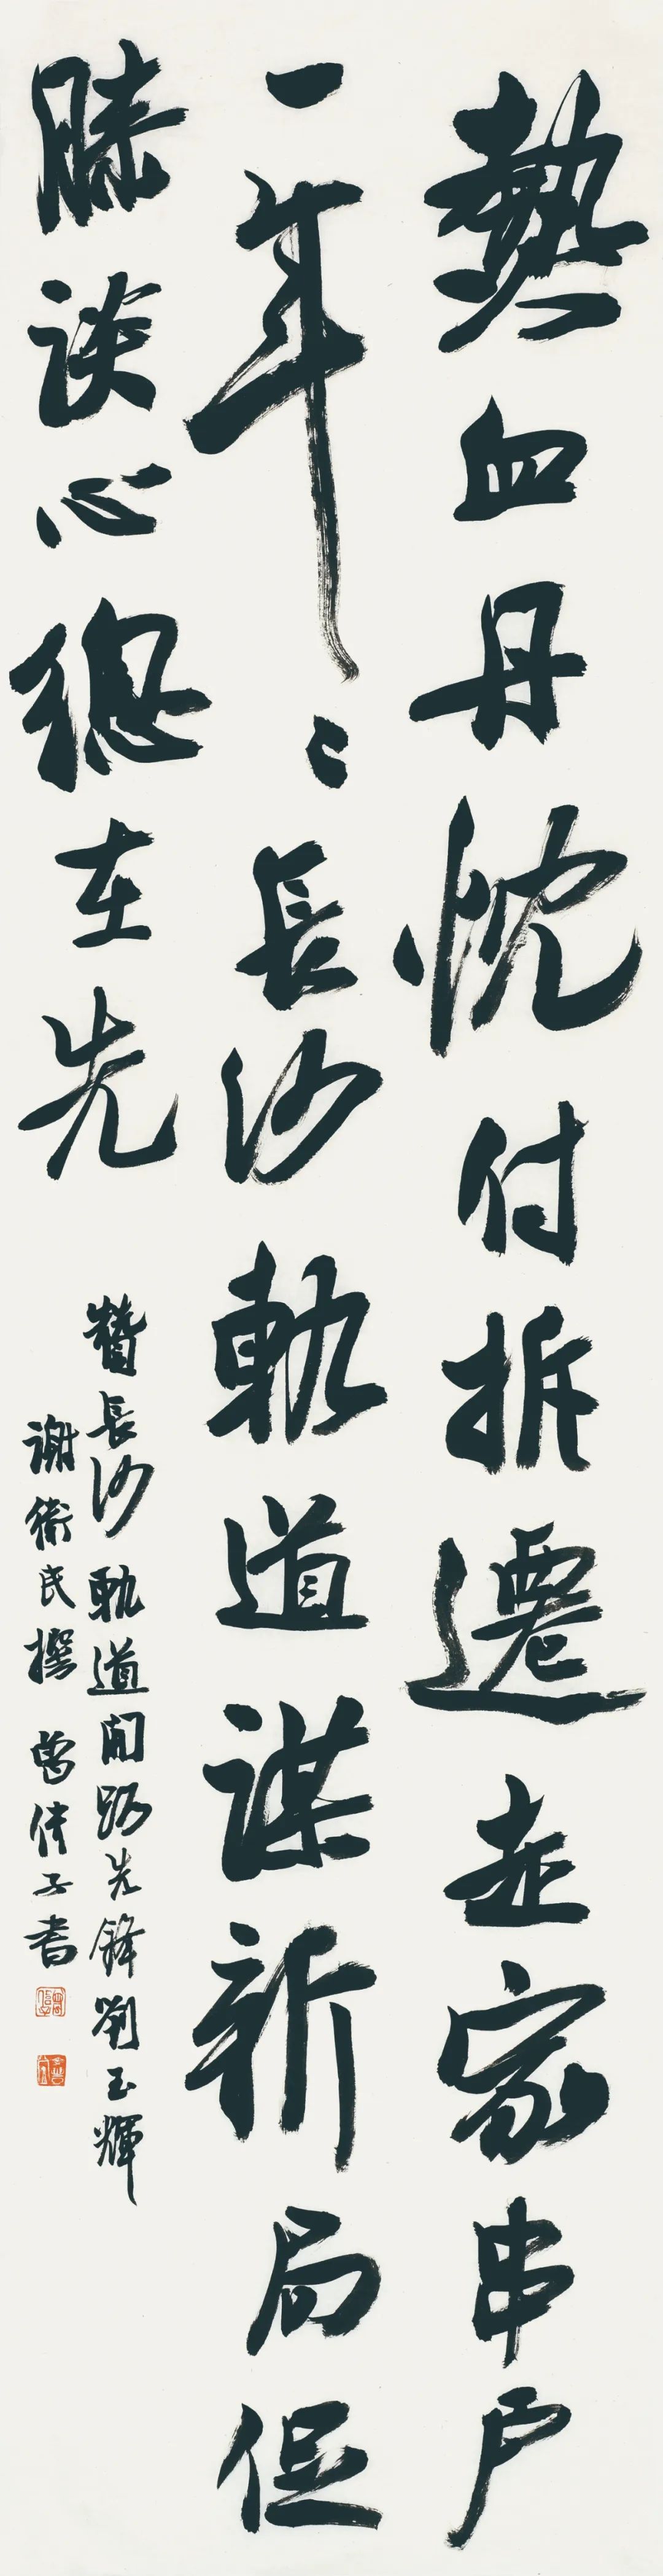 熱血丹忱付拆遷走家串戶
一年〻長沙軌道謀新局促
膝談心總在先
贊長沙軌道開路先鋒劉玉輝
謝衛民撰曾倚子書